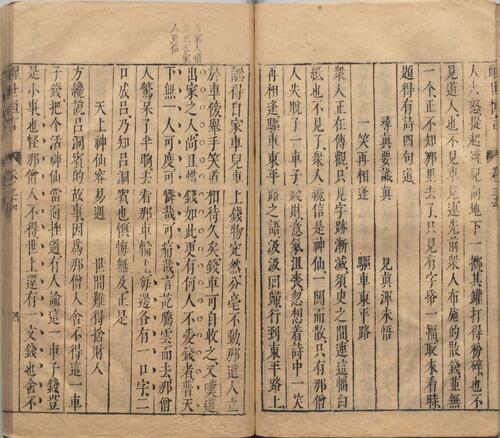 人大怒提起罐兒向地下一擲其罐打得粉碎也不
見道人也不見車兒連先前衆人布施的散錢並無
一个正不知那里去了只見有字帋一幅取來看時
題得有詩四句道
尋真要識真　見真渾未悟
一笑再相逢　驅車東平路
衆人正在傳觀只見字跡漸滅須臾之間連這幅白
紙也不見了衆人纔信是神仙一鬨而散只有那僧
人失脫了一車子錢財意氣沮喪忽想着詩中一笑
再相逢驅車東平路之語汲汲回歸行到東平路上
認得自家車兒車上錢物宛然分毫不動那道人立
於車傍舉手笑道相待久矣錢車可自收之又嘆道
出家之人尚且惜錢如此更有何人不愛錢者普天
下無一人可度可憐哉可痛哉言訖騰雲而去那僧
人驚呆了半晌去看那車輪上每邊各有一口字二
口成呂乃知呂洞賓也懊悔無及正是
天上神仙容易遇　世間難得捨財人
方纔說呂洞賓的故事因爲那僧人舍不得這一車
子錢把个活神仙當面挫過有人論這一車子錢豈
是小事也怪那僧人不得世上還有一文錢也舍不
醒世恒言